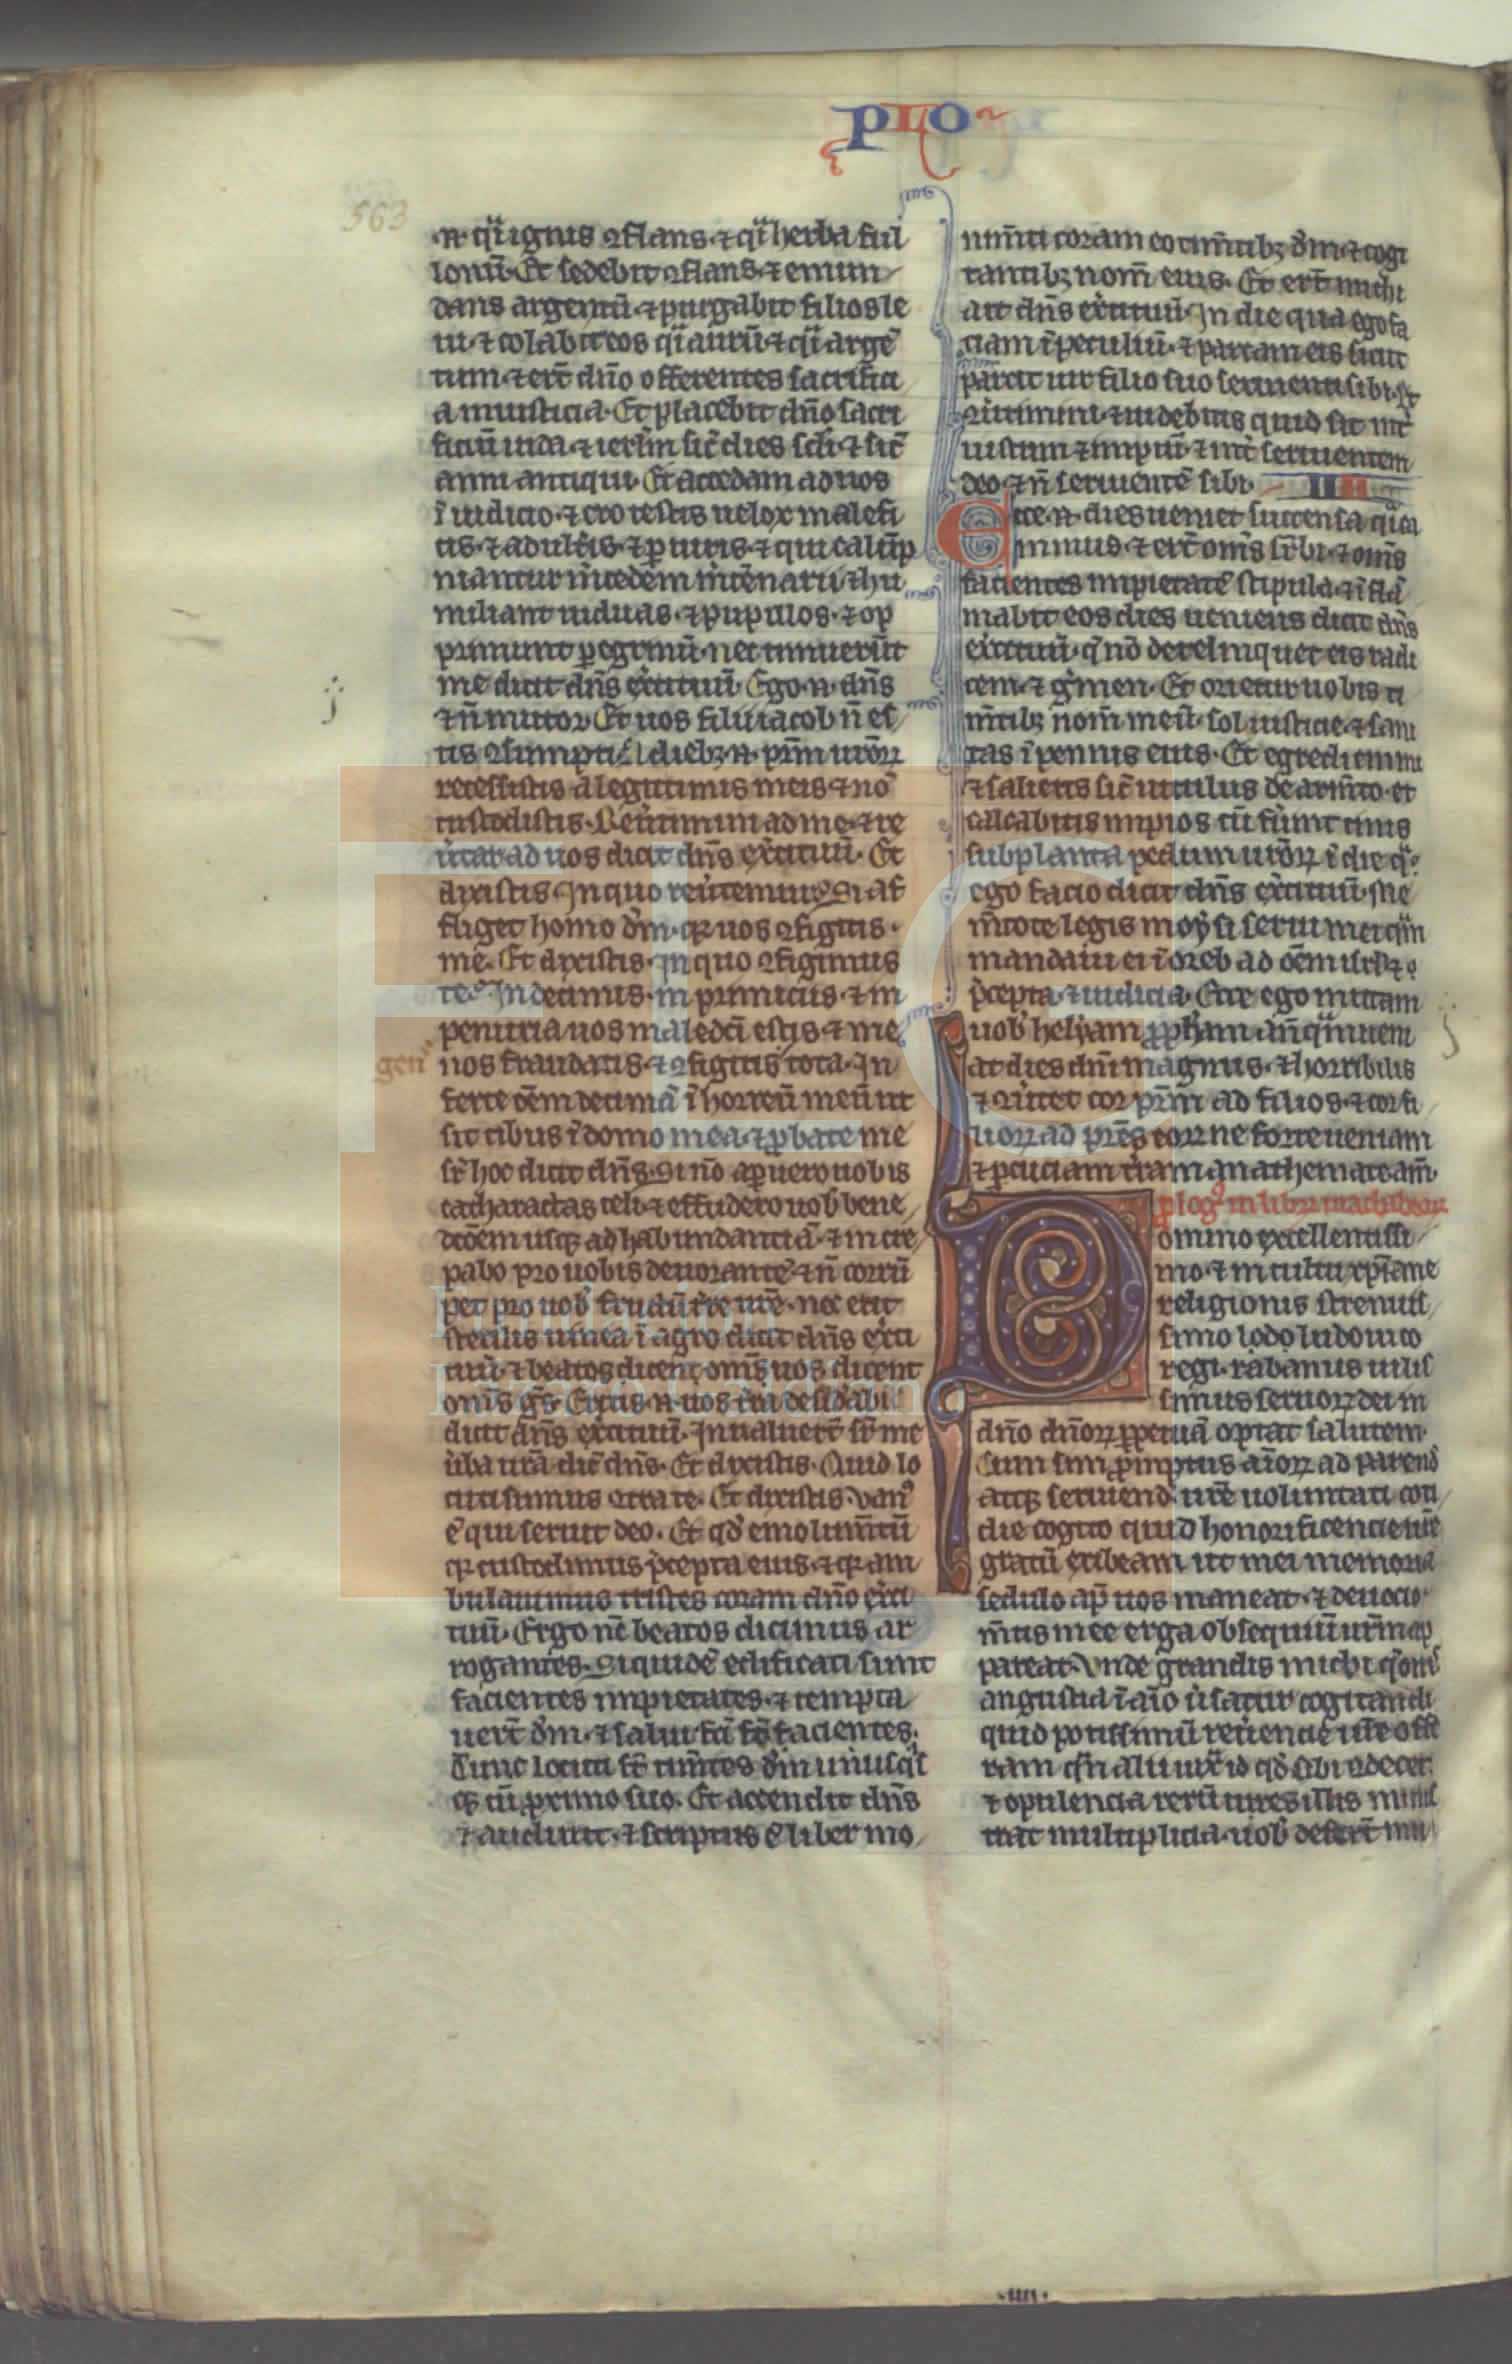 PLO
563
.n. qͣi ignis ꝯflans ⁊ qͣi herba ful
lonū. Et sedebit ꝯflans ⁊ emun
dans argentū ⁊ purgabit filios le
ui ⁊ colabit eos qͣi aurū ⁊ qͣi argē
tum ⁊ erūt dn̄o offerentes sacrifici
a in iusticia. Et placebit dn̄o sacri
ficiū iuda ⁊ ierl̄m sic̄ dies scl̄i ⁊ sic̄
anni antiqui. Et accedam ad uos
ī iudicio ⁊ ero testis uelox malefi
cis ⁊ adult̄is ⁊ ꝑiuris ⁊ qui calūp
niantur m̄cedem m̄cēnarii ⁊ hu
miliant uiduas ⁊ pupillos ⁊ op
primunt ꝑegrinū nec timuerūt
me dicit dn̄s ex̄cituū. Ego .n. dn̄s
⁊ n̄ mutor. Et uos filii iacob n̄ es
tis ꝯsumpti. A diebꝫ .n. pr̄m ur̄oꝝ
recessistis a legitimis meis ⁊ nō
custodistis. Reūtimini ad me ⁊ re
ūtar ad uos dicit dn̄s ex̄cituū. Et
dixistis. In quo reūtemur. Si af
fliget homo dm̄ qꝛ uos ꝯfigitis
me. Et dixistis. In quo ꝯfigimus
te. In decimis ⁊ in primiciis ⁊ in
penuria uos maledc̄i estis ⁊ me
gen
uos fraudatis ⁊ ꝯfigitis tota. In
ferte oēm decimā ī horreū meū ut
sit cibus ī domo mea ⁊ ꝓbate me
sr̄ hoc dicit dn̄s. Si nō aꝑuero uobis
catharactas celi ⁊ effudero uob̄ bene
dcōem usqꝫ ad habundanciā ⁊ incre
pabo pro uobis deuorantē ⁊ n̄ corrū
pet pro uob̄ fructū tr̄e ur̄e. nec erit
sterilis uinea ī agro dicit dn̄s ex̄ci
tuū. ⁊ beatos dicent uos
om̄s gn̄s. Eritis .n. uos tr̄a desid̄abil
dicit dn̄s ex̄cituū. Inualuerūt sr̄ me
ūba ur̄a dic̄ dn̄s. Et dixistis. Quid lo
cuti sumus ꝯtra te. Et dixistis. Van⁹
ē qui seruit deo. Et qd̄ emolumtū
qꝛ custodiimus p̄cepta eius ⁊ qꝛ am
bulauimus tristes coram dn̄o ex̄ci
tuū. Ergo nc̄ beatos dicimus ar
rogantes. Siquidē edificati sunt
facientes impietates ⁊ tempta
uerūt dm̄ ⁊ salui fc̄i sūt facientes.
Tunc locuti sūt timētes dm̄ unusqͥs
qꝫ cū proximo suo. Et attendit dn̄s
⁊ audiuit ⁊ scriptus ē liber mo
nim̄ti coram eo tim̄tibꝫ dm̄ ⁊ cogi
tantibꝫ nom̄ eius. Et erūt michi
ait dn̄s ex̄cituū. In die qua ego fa
ciam ī peculiū. ⁊ parcam eis sicut
parcit uir filio suo seruienti sibi. ⁊
ꝯūtimini ⁊ uidebitis quid sit int̄
iustum ⁊ impiū. ⁊ int̄ seruientem
deo ⁊ n̄ seruientē sibi. IIII
Ecce .n. dies ueniet succensa qͣi ca
minus ⁊ erūt om̄s suꝑbi ⁊ om̄s
facientes impietatē stipula ⁊ īflā
mabit eos dies ueniens dicit dn̄s
ex̄cituū. q̄ nō derelinquet eis radi
cem ⁊ ḡmen. Et orietur uobis ti
m̄tibꝫ nom̄ meū. sol iusticie ⁊ sani
tas ī pennis eius. Et egrediemini
⁊ salietis sic̄ uitulus de arm̄to et
calcabitis impios cū fūint cinis
sub planta pedum ur̄oꝝ ī die qͣ
ego facio dicit dn̄s ex̄cituū. Me
m̄tote legis moysi serui mei qͣm
mandaui ei ī oreb ad oēm isrl̄
p̄cepta ⁊ iudicia. Ecce ego mittam
uob̄ helyam ꝓph̄am an̄qͣ ueni
at dies dn̄i magnus ⁊ horribilis
⁊ ꝯūtet cor pr̄m ad filios ⁊ cor fi
lioꝝ ad pr̄es eoꝝ ne forte ueniam
⁊ ꝑcuciam tr̄am anathemate. am̄.
ꝓlog⁹ in libꝝ machabeoꝝ
Domino excellentissi
mo ⁊ in cultu xp̄iane
religionis strenuis
simo lodo ludouico
regi. rabanus uilis
simus seruoꝝ dei in
dn̄o dn̄oꝝ ꝑpetuā optat salutem.
Cum sim ꝓmptus aīoꝝ ad parend̄
atqꝫ seruiend̄ ur̄e uoluntati coti
die cogito quid honorificencie ur̄e
gratū exibeam ut mei memoria
sedulo ap̄ uos maneat ⁊ deuocio
m̄tis mee erga obsequiū ur̄m ap
pareat. Vnde grandis michi
angustia ī aīo ūsatur cogitandi
quid potissimū reūencie ur̄e offe
ram qn̄ alii uix̄ id qd̄ sibi ꝯdecet.
⁊ opulencia rerū uires illis minis
trat multiplicia uob̄ deferūt mu
.IIII.
FLG
Fundación
Lázaro Galdiano